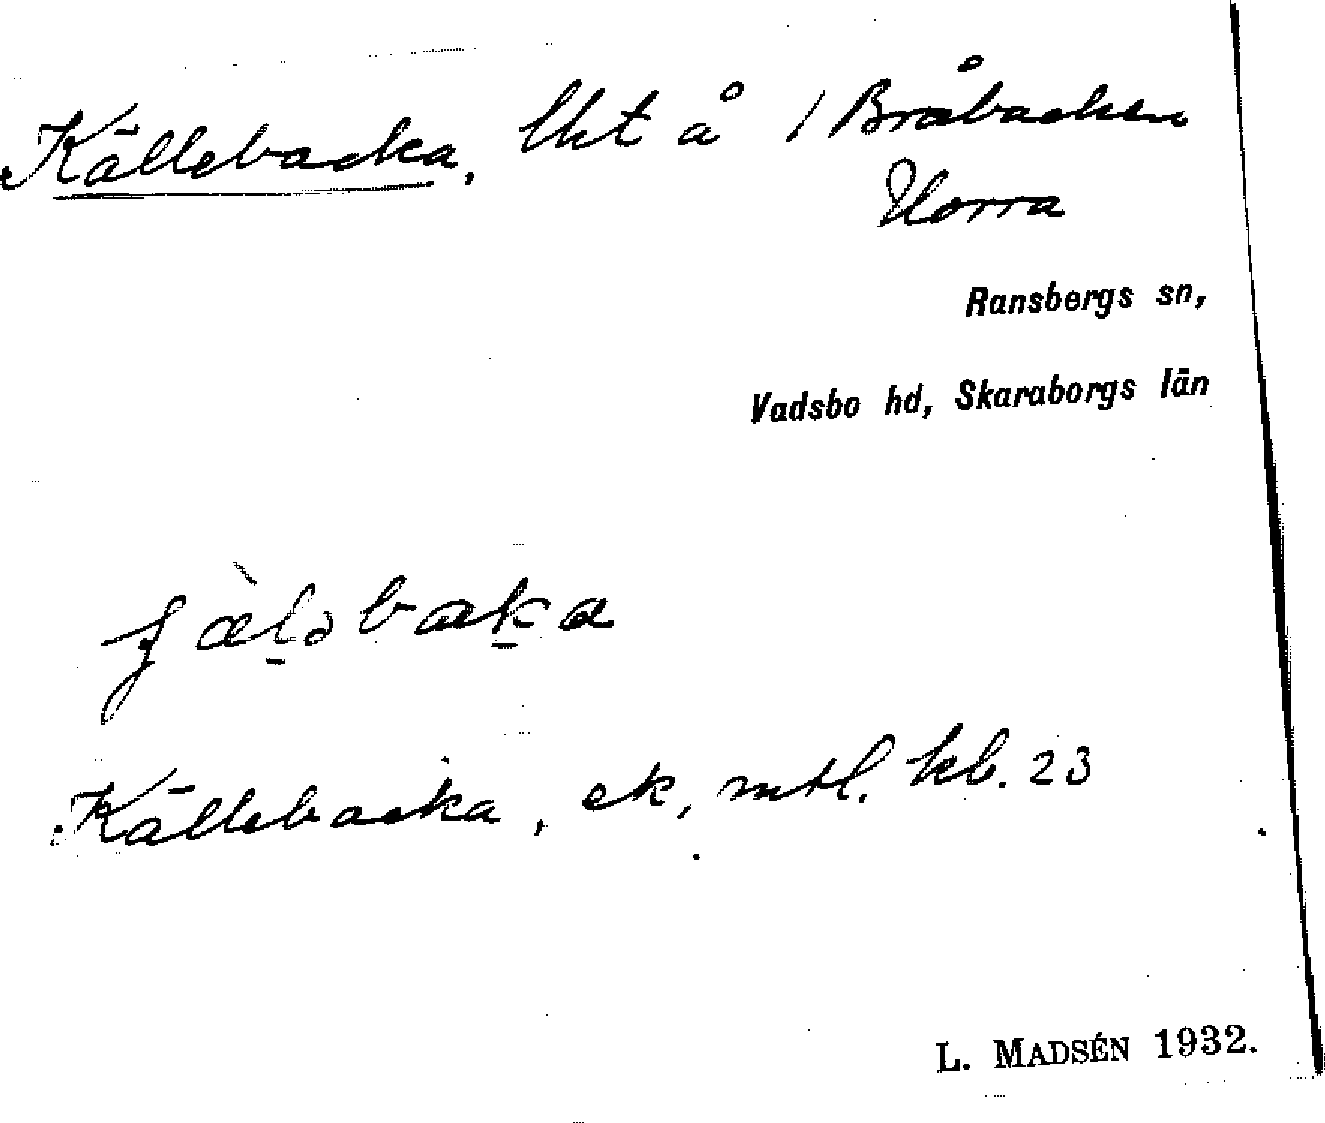 Källebacka, lht å 1 Bråbacken
Norra
Ransbergs sn,
Vadsbo hd, Skaraborgs län
Källebacka, ek, mtl. kb. 23
L. MADSÉN 1932.